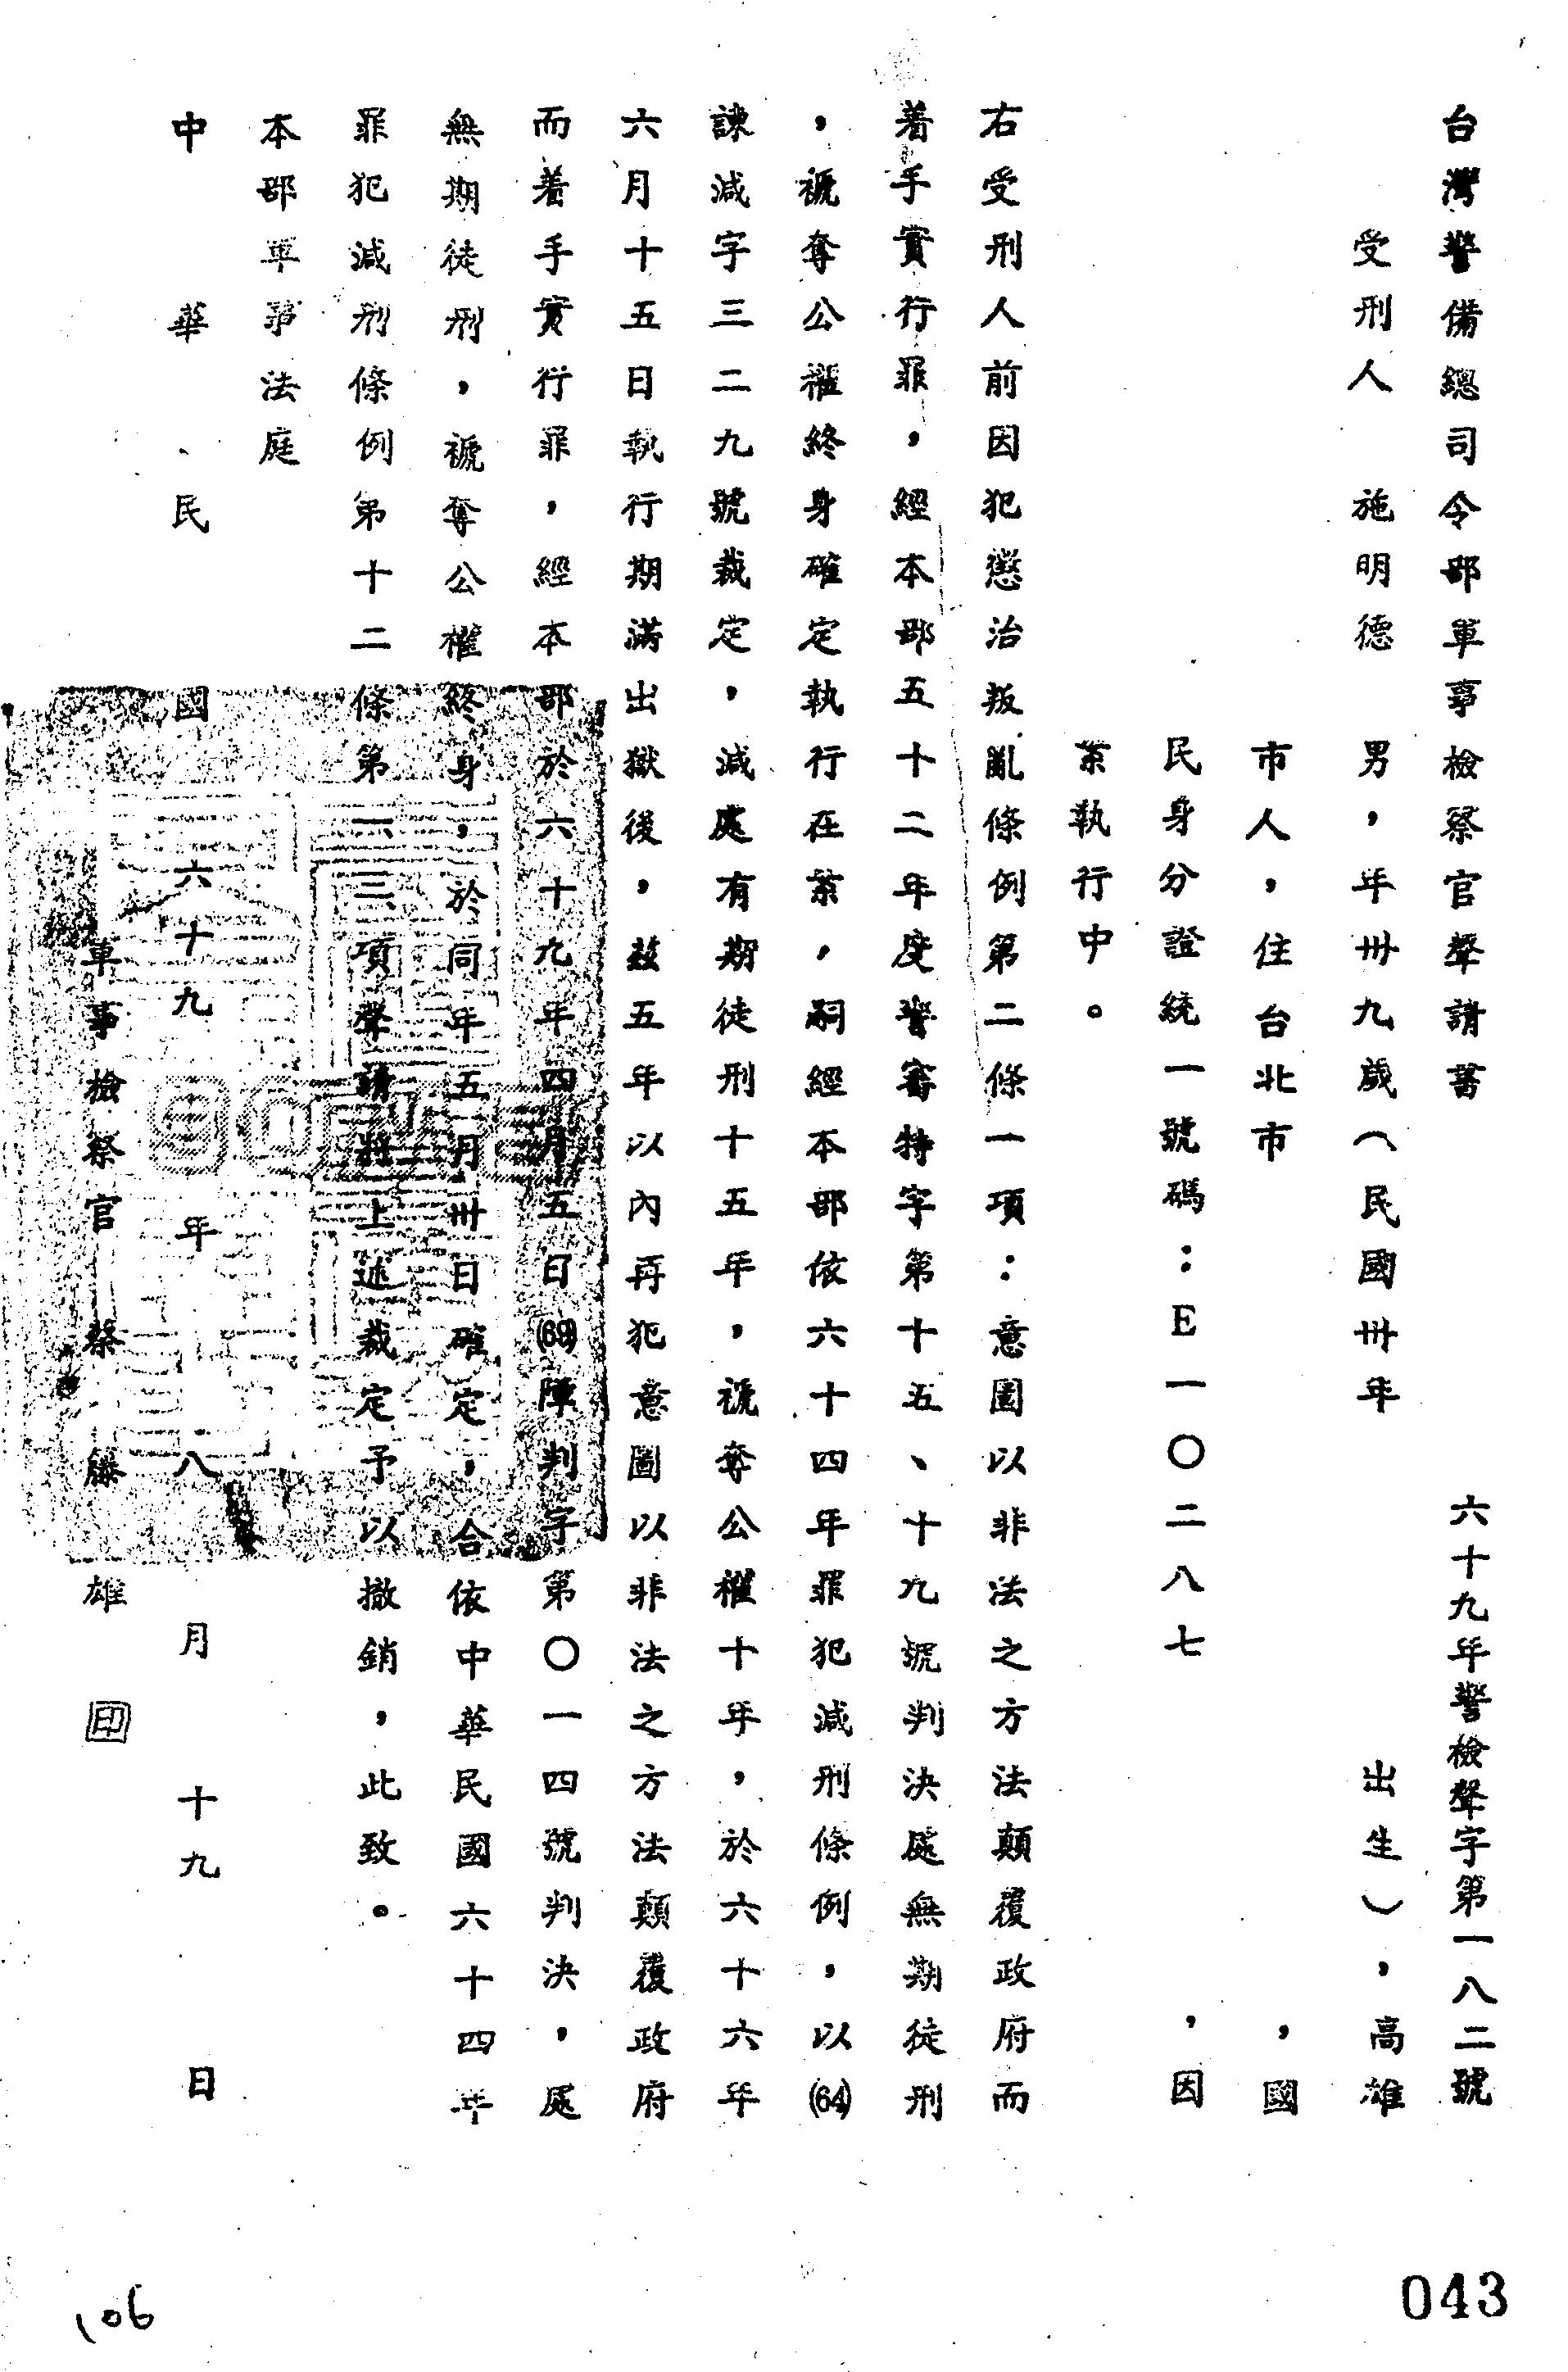 台灣警備總司令部軍事檢察官聲請書
六十九年警檢聲字第一八二號
受刑人 施明德 男，年卅九歲（民國卅年 出生），高雄
市人，住台北市 ，國
民身分證統一號碼：E一〇二八七 ，因
案執行中。
右受刑人前因犯懲治叛亂條例第二條一項：意圖以非法之方法顛覆政府而
着手實行罪，經本部五十二年度警審特字第十五、十九號判決處無期徒刑
，褫奪公權終身確定執行在案，嗣經本部依六十四年罪犯減刑條例，以(64)
諫減字三二九號裁定，減處有期徒刑十五年，褫奪公權十年，於六十六年
六月十五日執行期滿出獄後，茲五年以內再犯意圖以非法之方法顛覆政府
而着手實行罪，經本部於六十九年四月五日(69)障判字第〇一四號判決，處
無期徒刑，褫奪公權終身，於同年五月卅日確定，合依中華民國六十四年
罪犯減刑條例第十二條第一三項聲請將上述裁定予以撤銷，此致。
本部軍事法庭
中華民國六十九年八月十九日
軍事檢察官蔡籐雄 印
043
106